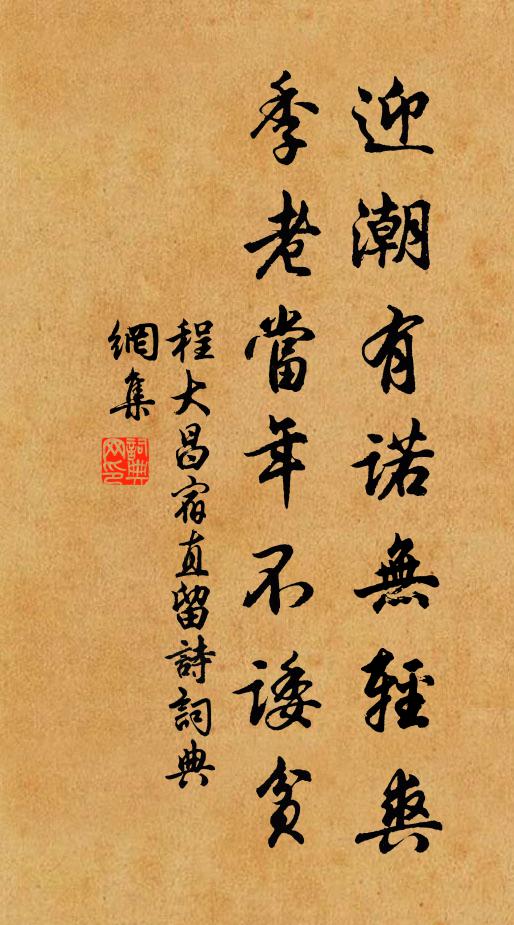 迎潮有諾無輕爽
季老當年不諉貧
程大昌宿直留詩詞典
網集
詞典
网印